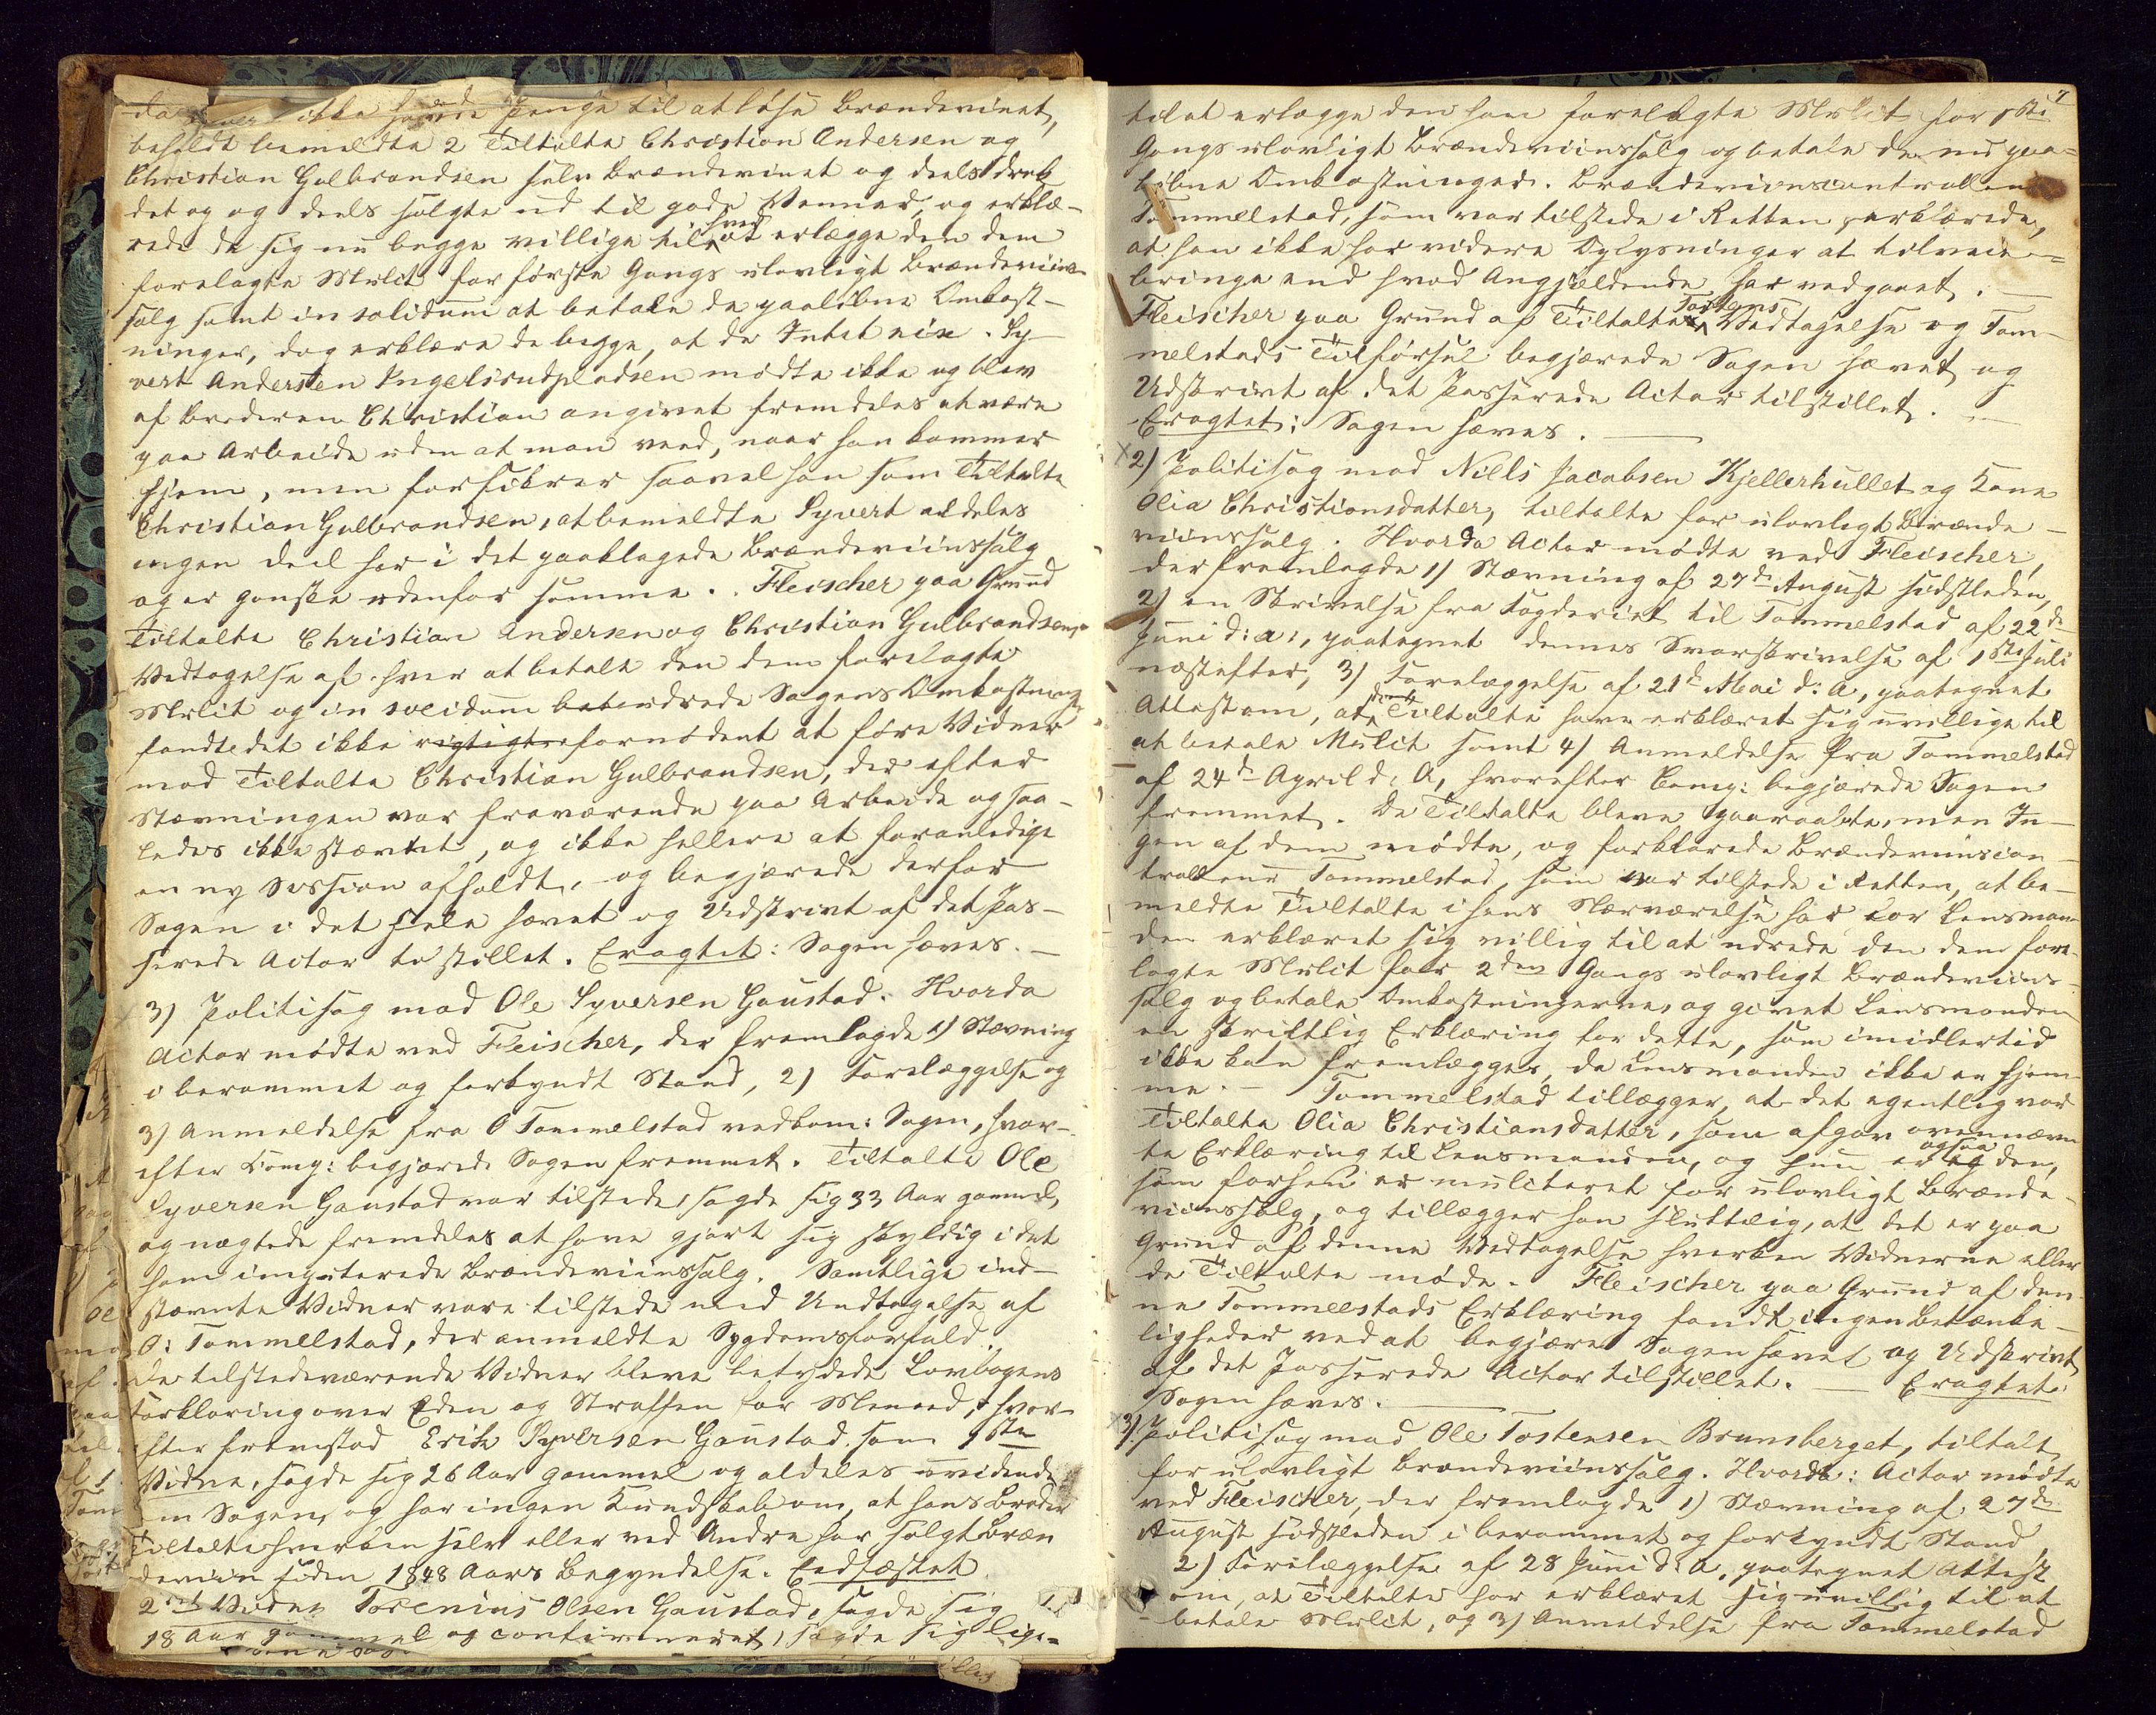 da ikke havde Penge til at løse Brændevinet,
beholdt bemeldte 2 Tiltalte Christian Andersen og
Christian Gulbrandsen selv Brændevinet og deels drak
det og og deels solgte ud til gode Venner, og erklæ-
rede de sig nu begge villige til hver at erlægge den dem
forelagte Mulct for første Gangs ulovligt Brændeviins-
salg samt in solidum at betale de paaløbne Omkost-
ninger, dog erklære de begge, at de Intet eie. Sy-
vert Andersen Ingelsrudpladsen mødte ikke og blev
af Broderen Christian angivet fremdeles at være
paa Arbeide uden at man veed, naar han kommer
hjem, men forsikrer saavel han som Tiltalte
Christian Gulbrandsen, at bemeldte Syvert aldeles
ingen Deel har i det paaklagede Brændeviinssalg
og er ganske udenfor samme. Fleischer paa Grund
Tiltalte Christian Andersen og Christian Gulbrandsens
Vedtagelse af hver at betale den dem forelagte
Mulct og in solidum udrede Sagens Omkostninger
fandt det ikke rigtigt fornødent at føre Vidner
mod Tiltalte Christian Gulbrandsen, der efter
Stævningen var fraværende paa Arbeide og saa-
ledes ikke stævnet, og ikke hellere at foranledige
en ny Session afholdt, og begjærede derfor
Sagen i det Hele hævet og Udskrivt af det Pas-
serede Actor tilstillet. Eragtet: Sagen hæves. —
3) Politisag mod Ole Syversen Gaustad. Hvorda
Actor mødte ved Fleischer, der fremlagde 1) Stævning
i berammet og forkyndt Stand, 2) Forelæggelse og
3) Anmeldelse fra O Tommelstad vedkom: Sagen, hvor-
efter Comp: begjærede Sagen fremmet. Tiltalte Ole
Syversen Gaustad var tilstede, sagde sig 33 Aar gammel,
og nægtede fremdeles at have gjort sig skyldig i det
ham imputerede Brændeviinssalg. Samtlige ind-
stævnte Vidner vare tilstede med Undtagelse af
O: Tommelstad, der anmeldte Sygdomsforfald.
De tilstedeværende Vidner bleve betydede Lovbogens
Forklaring over Eden og Straffen for Meened, hvor-
efter fremstod Erik Syversen Gaustad som 1ste
Vidne, sagde sig 26 Aar gammel og aldeles uvidende
om Sagen, og har ingen Kundskab om, at hans Broder
Tiltalte hverken selv eller ved Andre har solgt Bræn
deviin siden 1848 Aars Begyndelse. Eedfæstet
2det Vidne Torenius Olsen Gaustad, sagde sig
18 Aar gammel og confirmeret, sagde sig lige-
7
til at erlægge den ham forelagte Mulct for 1ste
Gangs ulovligt Brændeviinssalg og betale de nu paa=
løbne Omkostninger. Brændeviinscontrolleur
Tommelstad, som var tilstede i Retten, erklærede,
at han ikke har videre Oplysninger at tilveie=
bringe end hvad Angjældende har vedgaaet. —
Fleischer paa Grund af Tiltalte Vedtagelse og Tom-
melstads Tilførsel begjærede Sagen hævet og
Udskrivt af det Passerede Actor tilstillet. —
Eragtet: Sagen hæves. —
2) Politisag mod Niells Jacobsen Kjellerhullet og Kone
Olia Christiansdatter, tiltalte for ulovligt Brænde-
viinssalg. Hvorda Actor mødte ved Fleischer,
der fremlagde 1) Stævning af 27de August sidstleden,
2) en Skrivelse fra Fogderiet til Tommelstad af 22de
Juni d: A:, paategnet dennes Svarskrivelse af 1ste Juli
næstefter, 3) Forelæggelse af 21de Mai d: A, paategnet
Attest om, at Tiltalte have erklæret sig uvillige til
at betale Mulct samt 4) Anmeldelse fra Tommelstad
af 24de April d: A, hvorefter Comp: begjærede Sagen
fremmet. De Tiltalte bleve paaraabte, men In-
gen af dem mødte, og forklarede Brændeviinscon-
trolleur Tommelstad, som var tilstede i Retten, at be-
meldte Tiltalte i hans Nærværelse har for Lensman-
den erklæret sig villig til at udrede den dem fore-
lagte Mulct for 2den Gangs ulovligt Brændeviins-
salg og betale Omkostningerne, og givet Lensmanden
en skriftlig Erklæring for dette, som imidlertid
ikke kan fremlægges, da Lensmanden ikke er hjem-
me. — Tommelstad tillægger, at det egentlig var
Tiltalte Olia Christiansdatter, som afgav ovennævn
te Erklæring til Lensmanden, og hun er ogsaa den,
som forhen er mulcteret for ulovligt Brænde-
viinssalg, og tillægger han sluttelig, at det er paa
Grund af denne Vedtagelse hverken Vidnerne eller
de Tiltalte møde. Fleischer paa Grund af den-
ne Tommelstads Erklæring fandt ingen Betænke-
ligheder ved at begjære Sagen hævet og Udskrivt
af det Passerede Actor tilstillet. — Eragtet:
Sagen hæves. —
3) Politisag mod Ole Tostensen Brunsberget, tiltalt
for ulovligt Brændeviinssalg. Hvorda: Actor mødte
ved Fleischer, der fremlagde 1) Stævning af 27de
August sidstleden i berammet og forkyndt Stand
2) Forelæggelse af 28 Juni d: A, paategnet Attest
om, at Tiltalte har erklæret sig uvillig til at
betale Mulct, og 3) Anmeldelse fra Tommelstad